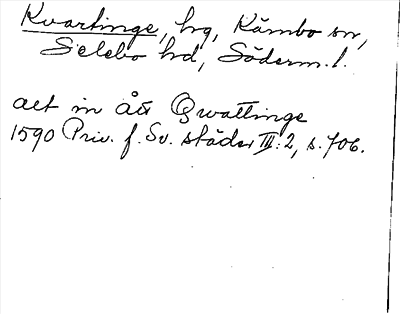 Kvartinge, hg, Kärnbo sn,
Selebo hd, Söderm. l.
aet in åtι Qwattinge
1590 Priv. f. Sv. städer III:2, s. 706.